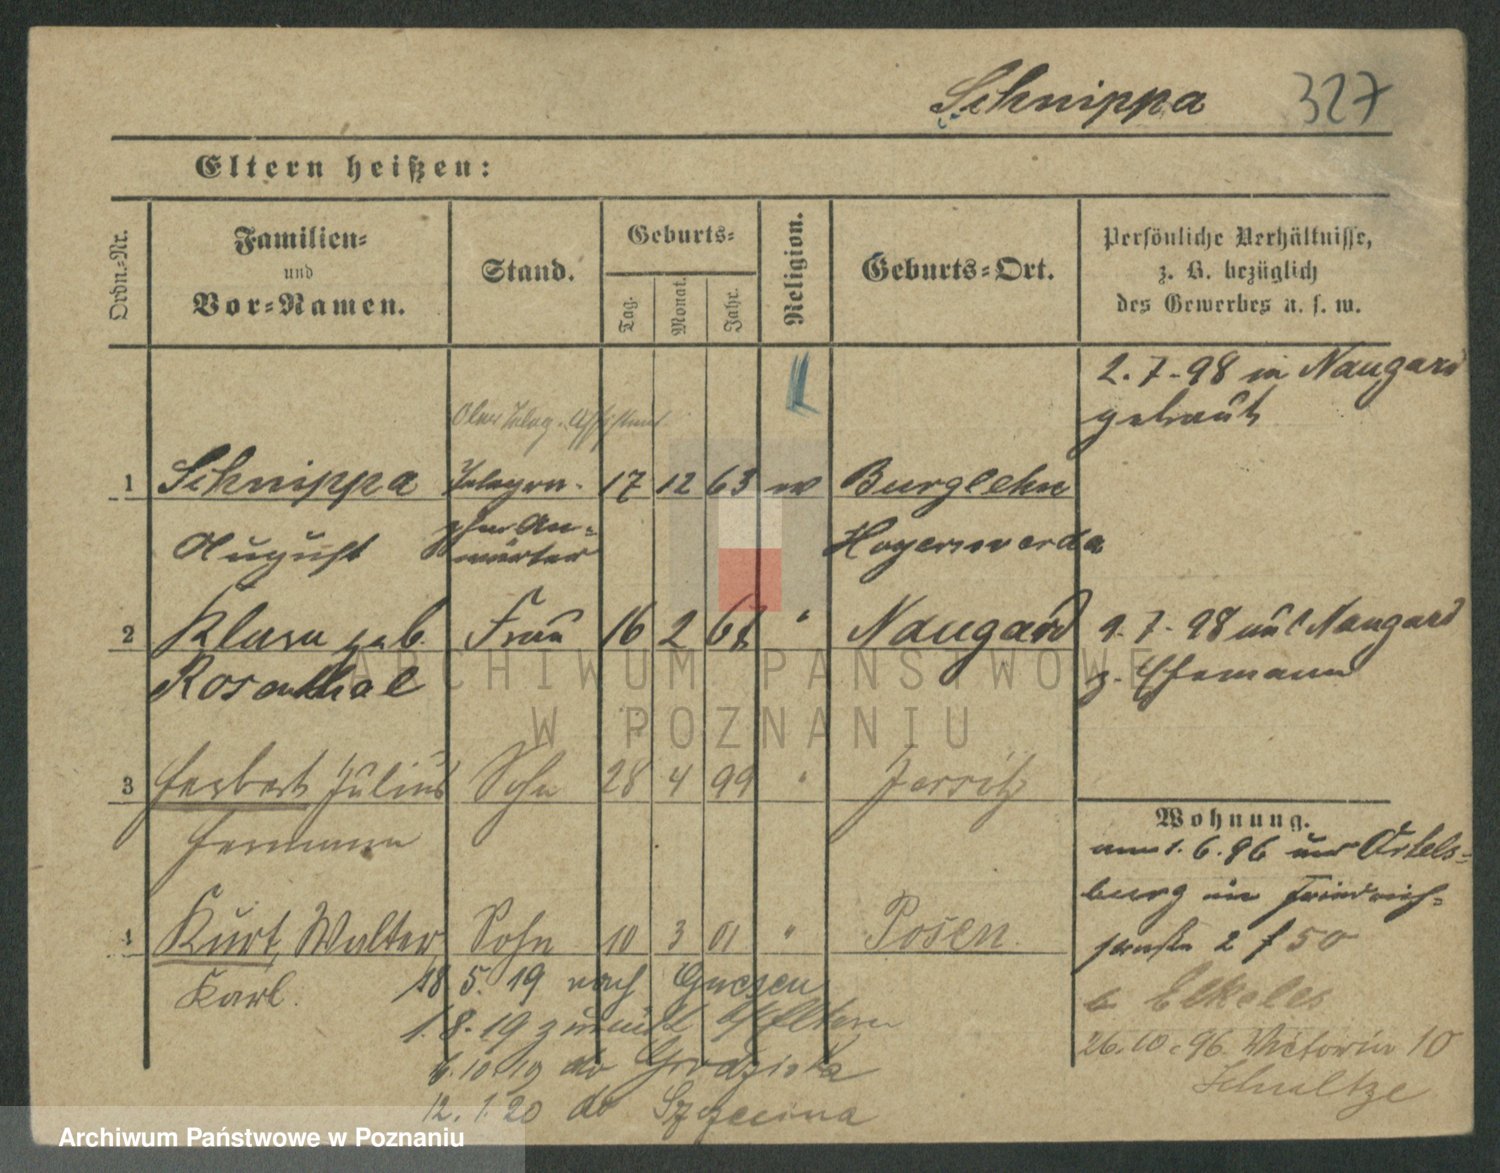 Schnippa 327
Eltern heißen:
Ordn.-Nr.
Familien-
und
Vor-Namen.
Stand.
Geburts-
Tag.
Monat.
Jahr.
Religion.
Geburts-Ort.
Persönliche Verhältnisse,
z. B. bezüglich
des Gewerbes u. s. w.
2.7.-98 in Naugard
getraut
Ober Teleg. Assistent
1 Schnippa Telegra- 17 12 63 ev Burglehn
August phen An- Hoyerswerda
wärter
2 Klara geb. Frau 16 2 67 " Naugard 9.7.-98 aus Naugard
Rosenthal z. Ehemann
3 Herbert Julius Sohn 28 4 99 " Jersitz
Hermann
Wohnung.
1.6.96 Ortels-
burg Friedrich-
straße 2 f 50
4 Kurt, Walter, Sohn 10 3 01 " Posen.
Karl.
18 5. 19 nach Gnesen
1.8.19 zurück Eltern
6.10.19 do Grodziska
12.1.20 do Szczecina
b Elkeles
26.10.96. Victoria 10
Schultze
ARCHIWUM PAŃSTWOWE
W POZNANIU
Archiwum Państwowe w Poznaniu